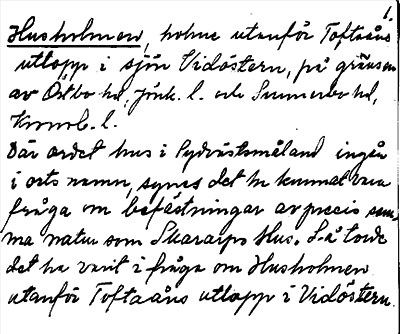 1.
Husholmen, holme utanför Toftaåns
utlopp i sjön Vidöstern, på gränsen
av Östbo hd, Jönk. l. och Sunnerbo hd,
Kronob. l.
Där ordet hus i Sydvästsmåland ingår
i orts namn, synes det ha kunnat vara
fråga om befästningar av precis sam-
ma natur som Skararps Hus. Så torde
det ha varit i fråga om Husholmen
utanför Toftaåns utlopp i Vidöstern.